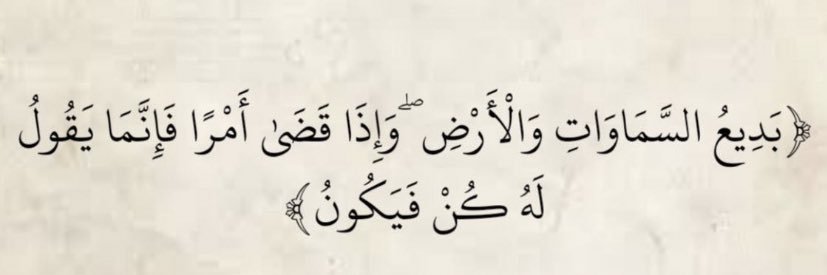 ﴿بَدِيعُ السَّمَاوَاتِ وَالْأَرْضِ ۖ وَإِذَا قَضَىٰ أَمْرًا فَإِنَّمَا يَقُولُ
لَهُ كُنْ فَيَكُونُ﴾